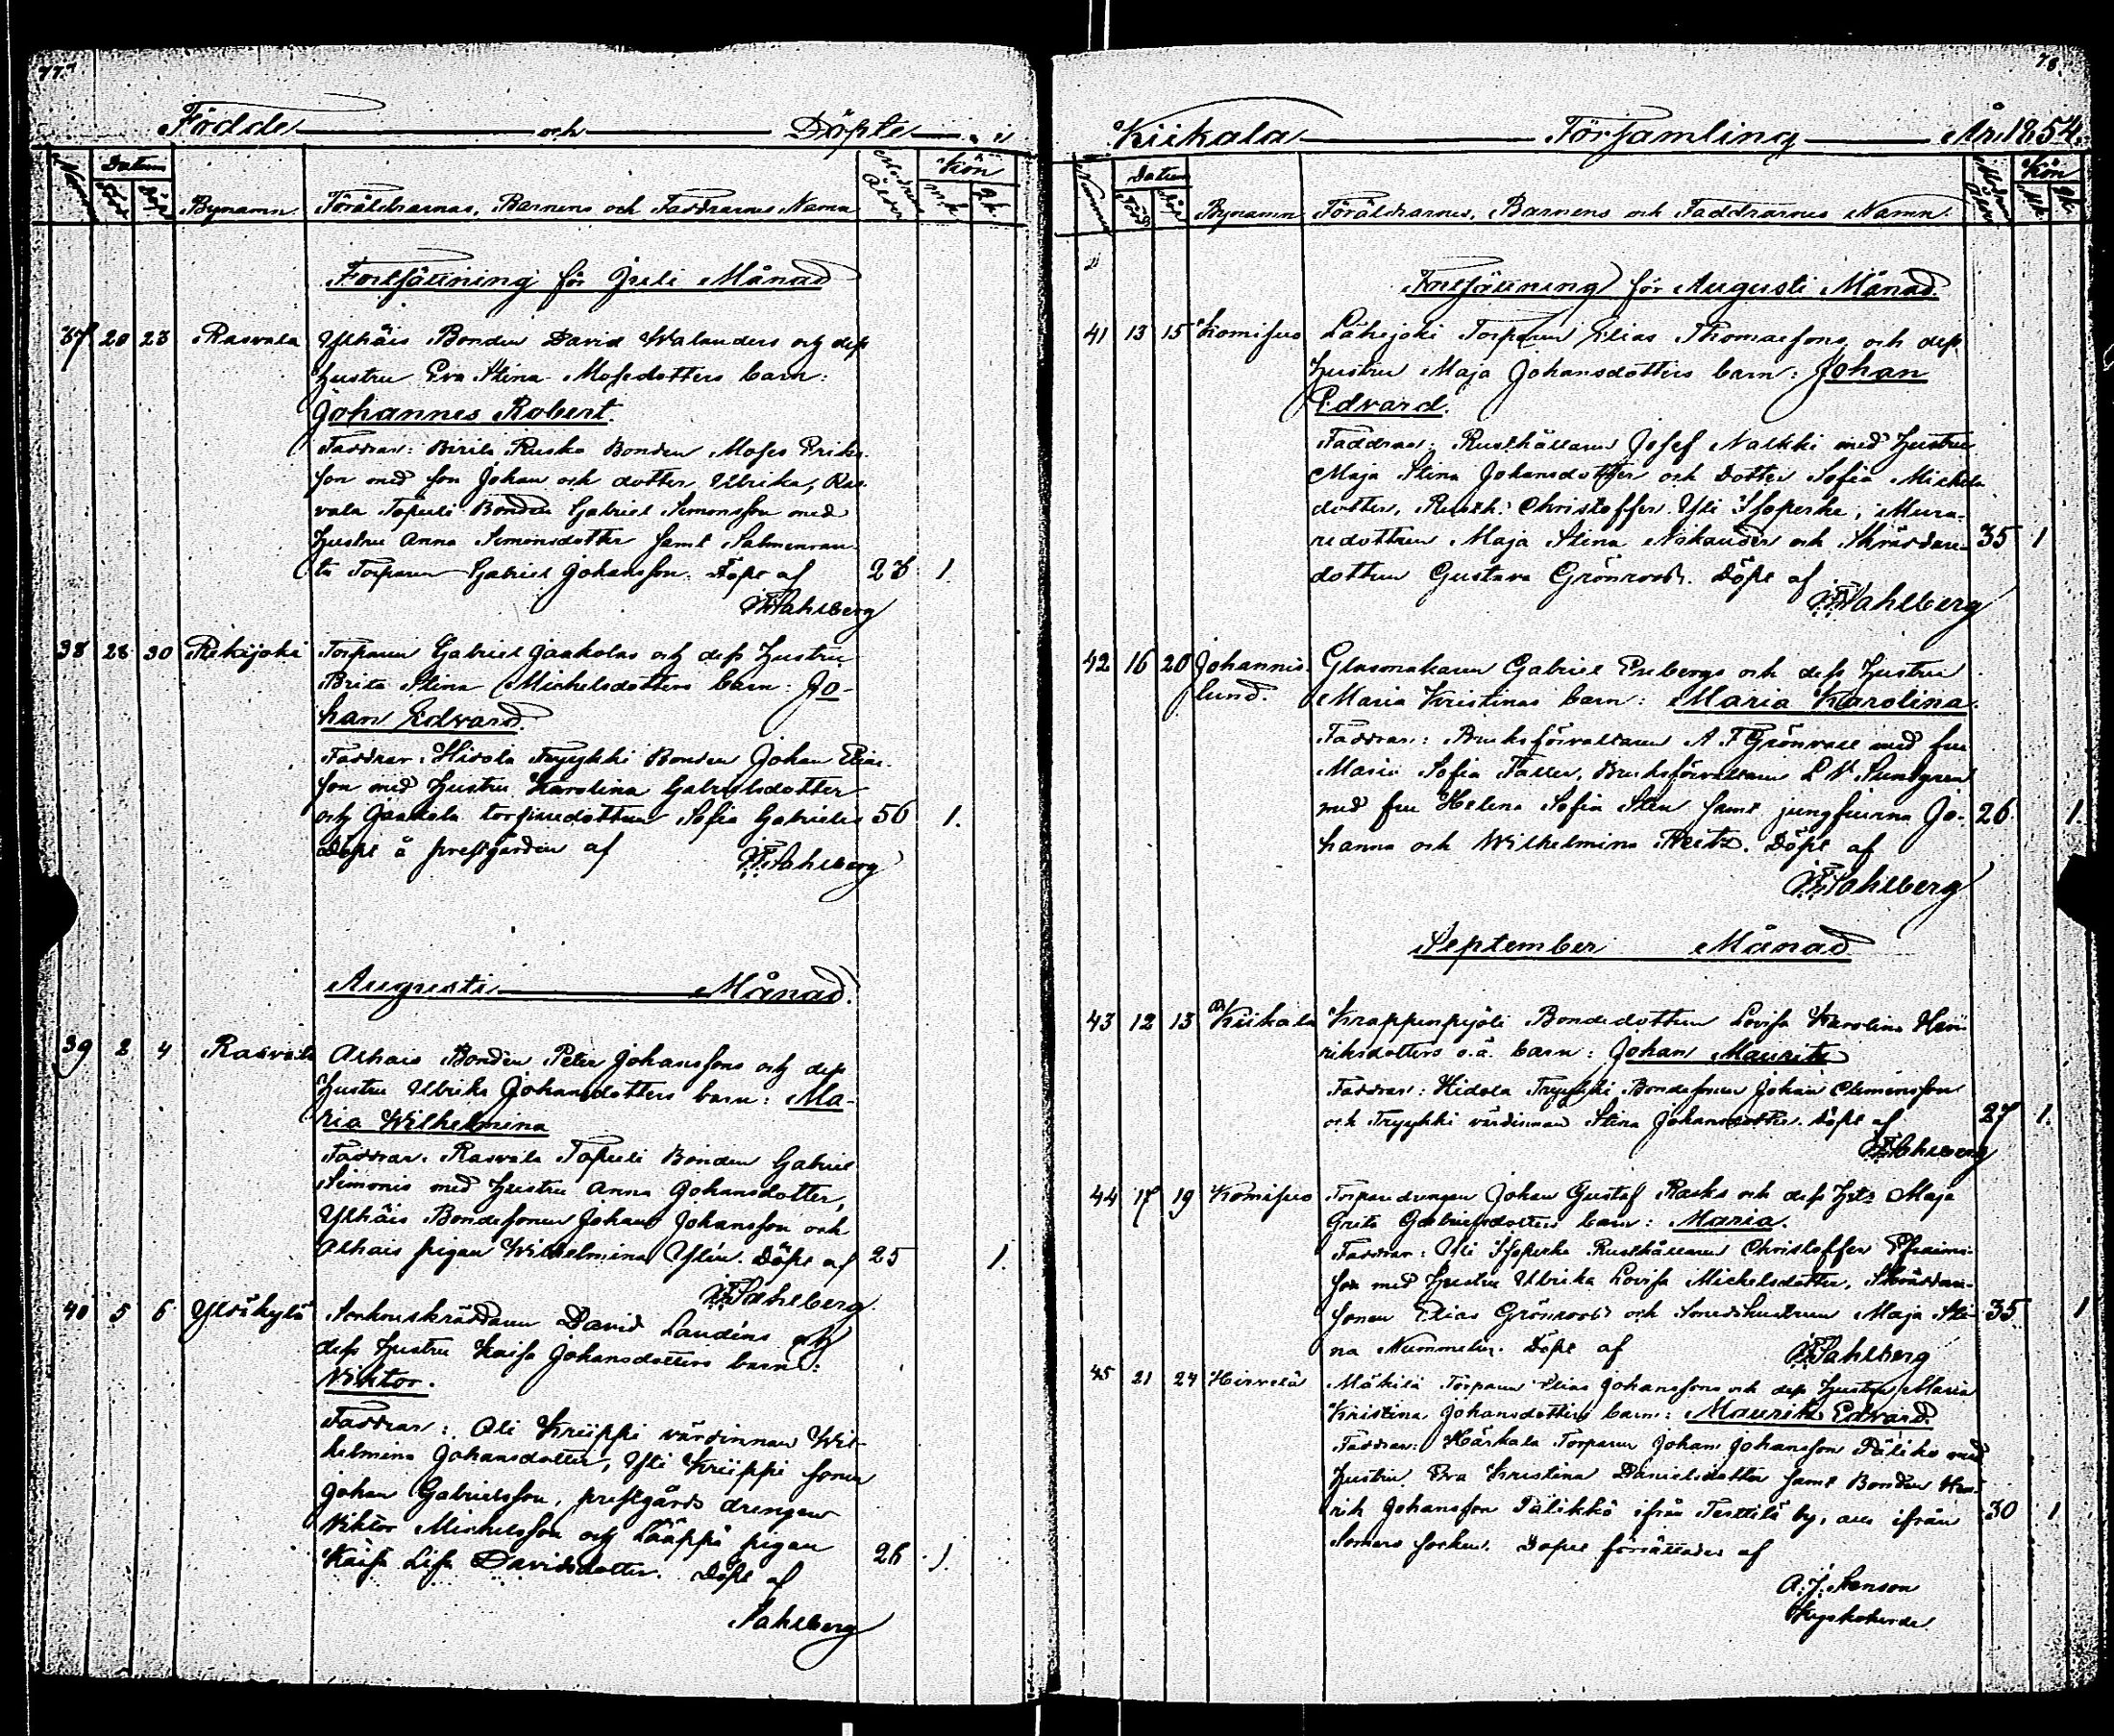 77.
Födde och Döpte i
Nummer Datum Född Döpt Bynamn Föräldrarnas, Barnens och Faddrarnes Namn Modrens Ålder Kön Mk. Qk.
Fortsättning för Juli Månad
37 20 23 Rasvala Ylhäis Bonden David Walanders och dess
hustru Eva Stina Mosesdotters barn:
Johannes Robert.
Faddrar: Birila Rusko Bonden Moses Eriks-
son med son Johan och dotter Ulrika, Ras-
vala Tapuli Bonden Gabriel Simonsson med
hustru Anna Simonsdotter samt Salmenran-
ta Torparen Gabriel Johansson. Döpt af 1.
Sahlberg
38 28 30 Rekijoki Torparen Gabriel Jaakolas och dess hustru
Brita Stina Michelsdotters barn: Jo-
han Edvard.
Faddrar: Hidola Tryykki Bonden Johan Elias-
son med hustru Karolina Gabrielsdotter
och Jaakola torparedottren Sofia Gabriels 1.
Döpt å prestgården af Sahlberg
Augusti Månad.
39 2 4 Rasvala Alhais Bonden Peter Johanssons och dess
hustru Ulrika Johansdotters barn: Ma-
ria Wilhelmina
Faddrar: Rasvala Tapuli Bonden Gabriel
Simonis med hustru Anna Johansdotter,
Ylhäis Bondesonen Johan Johansson och
Alhais pigan Wilhelmina Ylin. Döpt af 25 1.
Sahlberg.
40 5 6 Yltäkylä Sockneskräddaren David Laudéns och
dess hustru Kaisa Johansdotters barn:
Viktor.
Faddrar: Ali Kriippi värdinnan Wil-
helmina Johansdotter, Yli Kriippi sonen
Johan Gabrielsson, prestgårds drengen
Viktor Michelsson och Lääppä pigan
Kaisa Lisa Davidsdotter. Döpt af 26 1.
Sahlberg
78.
Kiikala Församling År 1854.
Nummer Datum Född Döpt Bynamn Föräldrarnes, Barnens och Faddrarnes Namn. Modrens Ålder Kön Mk. Qk.
Fortsättning för Augusti Månad.
41 13 15 Komisuo Lähejoki Torparen Elias Thomassons och dess
hustru Maja Johansdotters barn: Johan
Edvard.
Faddrar: Rusthållaren Josef Nalkki med hustru
Maja Stina Johansdotter och Dotter Sofia Michels-
dotter, Rusth: Christoffer Yli Isoperhe, Mura-
redottren Maja Stina Nikander och Skräddare- 35 1
dottren Gustava Grönroos. Döpt af
Sahlberg
42 16 20 Johannis- Glasmakaren Gabriel Enbergs och dess hustru
lund. Maria Kristinas barn: Maria Karolina.
Faddrar: Bruksförvaltaren A F Grönvall med fru
Maria Sofia Faller, Bruksförvaltaren L W Sundgren
med fru Helena Sofia Sten samt jungfrurna Jo- 26. 1.
hanna och Wilhelmina Reitz. Döpt af
Sahlberg
September Månad
43 12 13 Kiikala Krappenpyöli Bondedottren Lovisa Karolina Hen-
riksdotters o.ä. barn: Johan Maurits
Faddrar: Hidola Tryykki Bondesonen Johan Clemensson
och Tryykki värdinnan Stina Johansdotter. Döpt af 27 1.
Sahlberg
44 17 19 Komisuo Torpardrengen Johan Gustaf Rasks och dess hust: Maja
Greta Gabrielsdotters barn: Maria.
Faddrar: Yli Isoperhe Rusthållaren Christoffer Efraims-
son med hustru Ulrika Lovisa Michelsdotter, Skräddare-
sonen Elias Grönroos och Smedshustrun Maja Sti- 35 1
na Nummelin. Döpt af Sahlberg
45 21 24 Hirvelä Mäkilä Torparen Elias Johanssons och dess hustru Maria
Kristina Johansdotters barn: Maurits Edvard.
Faddrar: Härkälä Torparen Johan Johansson Päliko med
hustru Eva Kristina Danielsdotter samt Bonden Hen-
rik Johansson Tälikkö ifrån Terttilä by, alla ifrån 30 1
Somero socken. Dopet förrättades af
A. J. Stenson
Kyrkoherde.